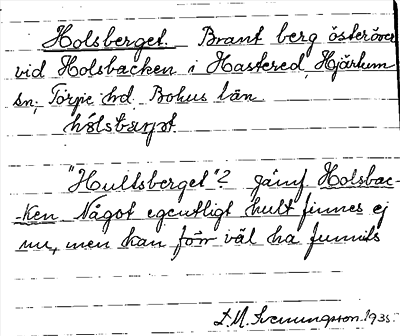 Holsberget. Brant berg österöver
vid Holsbacken i Hastered, Hjärtum
sn, Torpe hd. Bohus län
"Hultsberget"? jämf. Holsbac-
-ken Något egentligt hult finnes ej
nu, men kan förr väl ha funnits
D.M. Svenungsson. 1935.